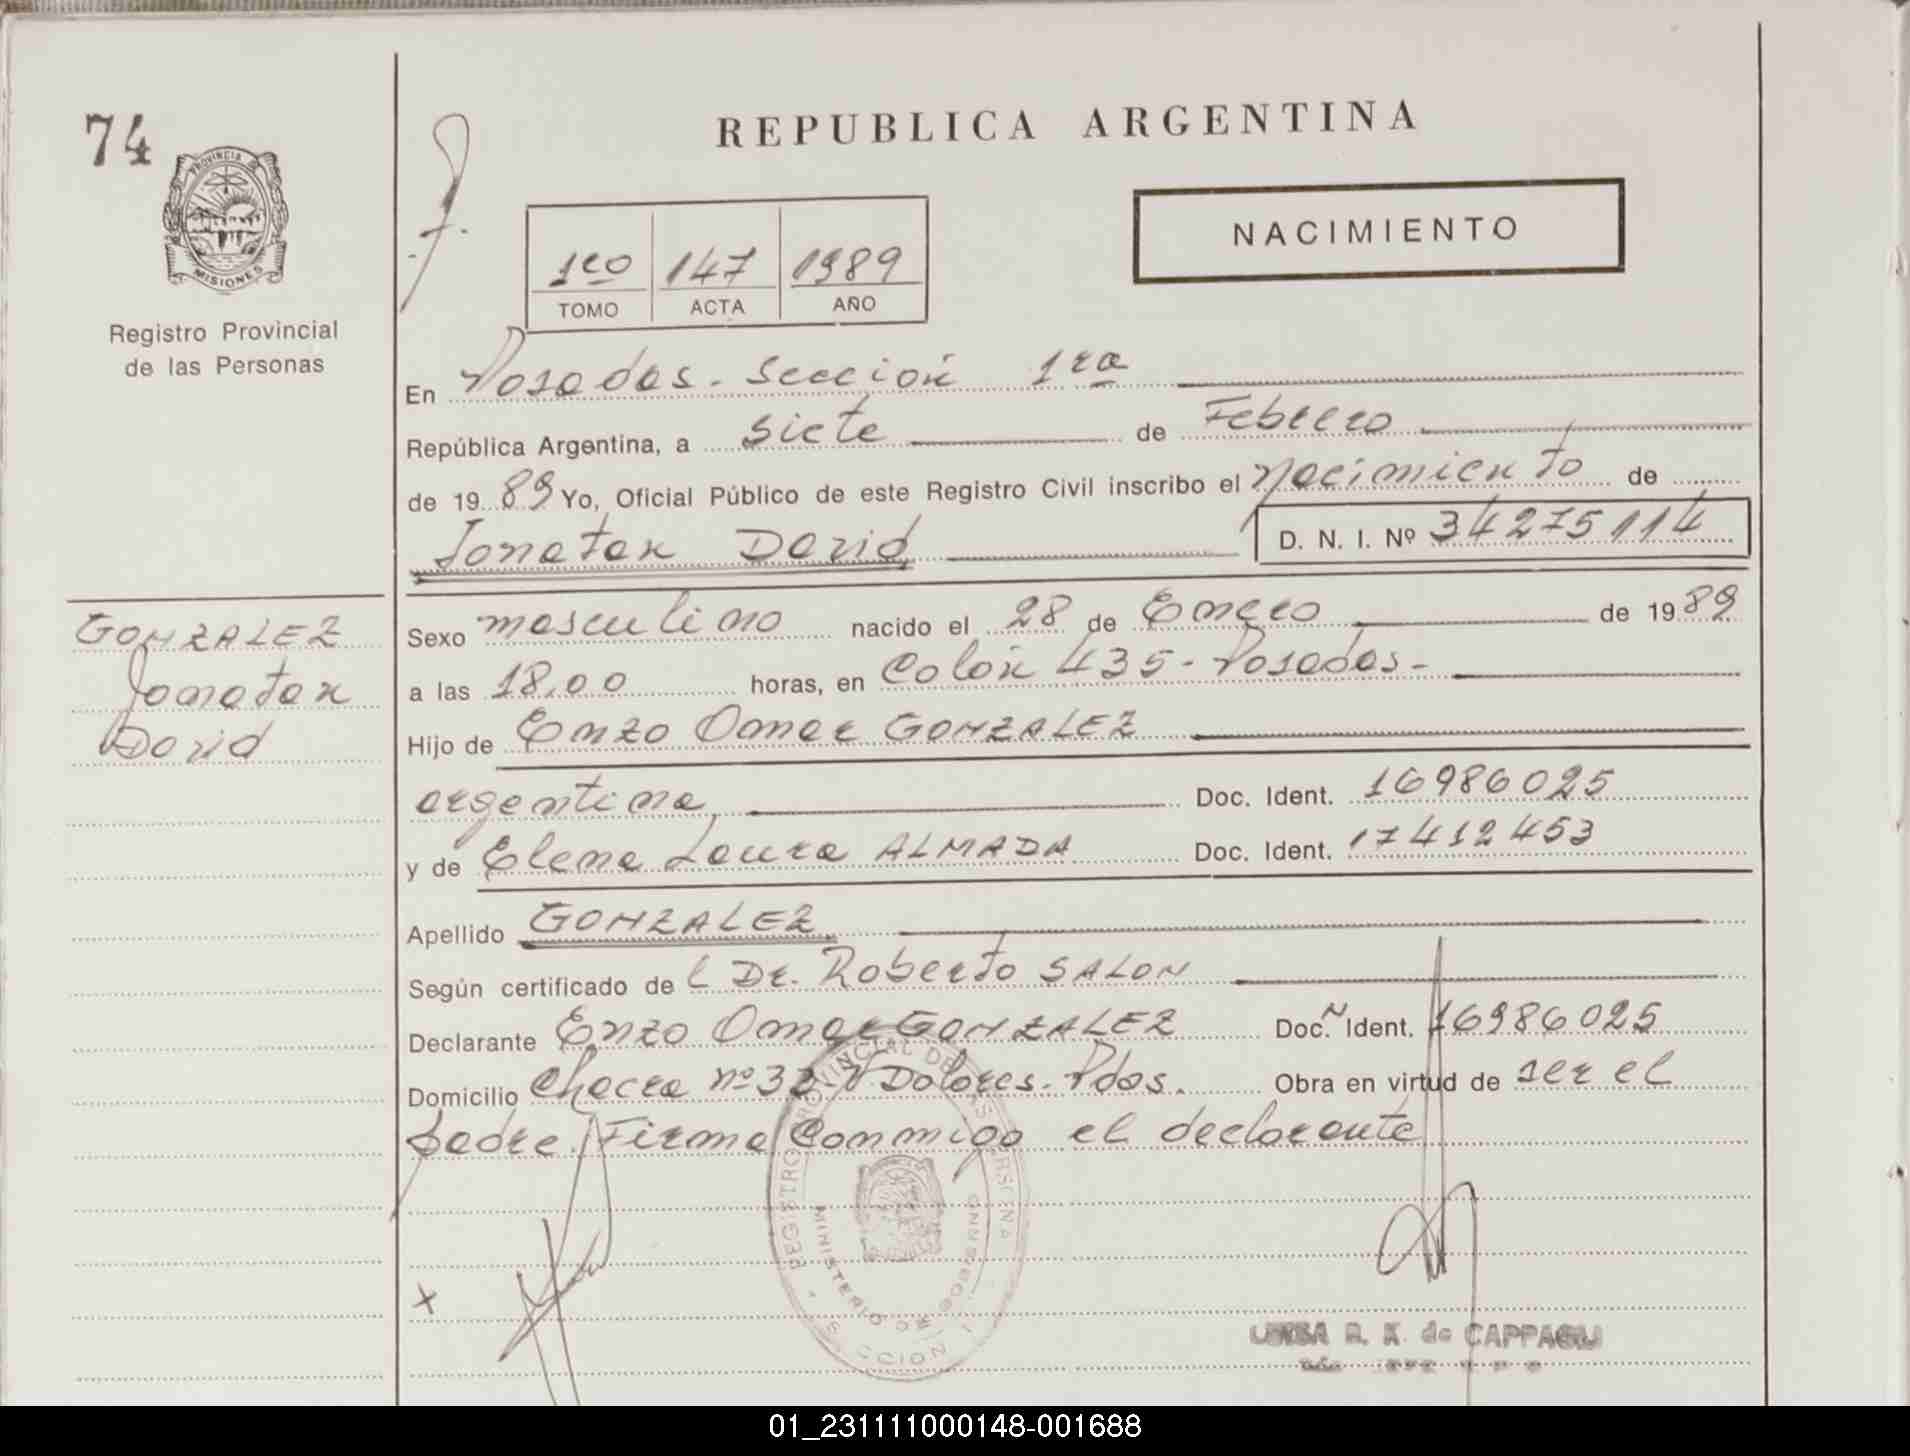 74
PROVINCIA DE
MISIONES
Registro Provincial
de las Personas
REPUBLICA ARGENTINA
NACIMIENTO
1ro 147 1989
TOMO ACTA AÑO
En Posadas. Sección 1ra
República Argentina, a siete de Febrero
de 1989 Yo, Oficial Público de este Registro Civil inscribo el nacimiento de
Jonatan David D. N. I. Nº 34275114
GONZALEZ
Jonatan
David
Sexo masculino nacido el 28 de Enero de 1989
a las 18,00 horas, en Colón 435 - Posadas -
Hijo de Enzo Omar GONZALEZ
argentina Doc. Ident. 16986025
y de Elena Laura ALMADA Doc. Ident. 17412453
Apellido GONZALEZ
Según certificado de l Dr. Roberto SALON
Declarante Enzo Omar GONZALEZ Doc. Ident. 16986025
Domicilio Chacra nº 32 - V Dolores. Pdas. Obra en virtud de ser el
padre. Firma Conmigo el declarante
REGISTRO PROVINCIAL DE LAS PERSONAS
MINISTERIO DE GOBIERNO
SECCION 1
X
R. K. de CAPPAGLI
01_231111000148-001688